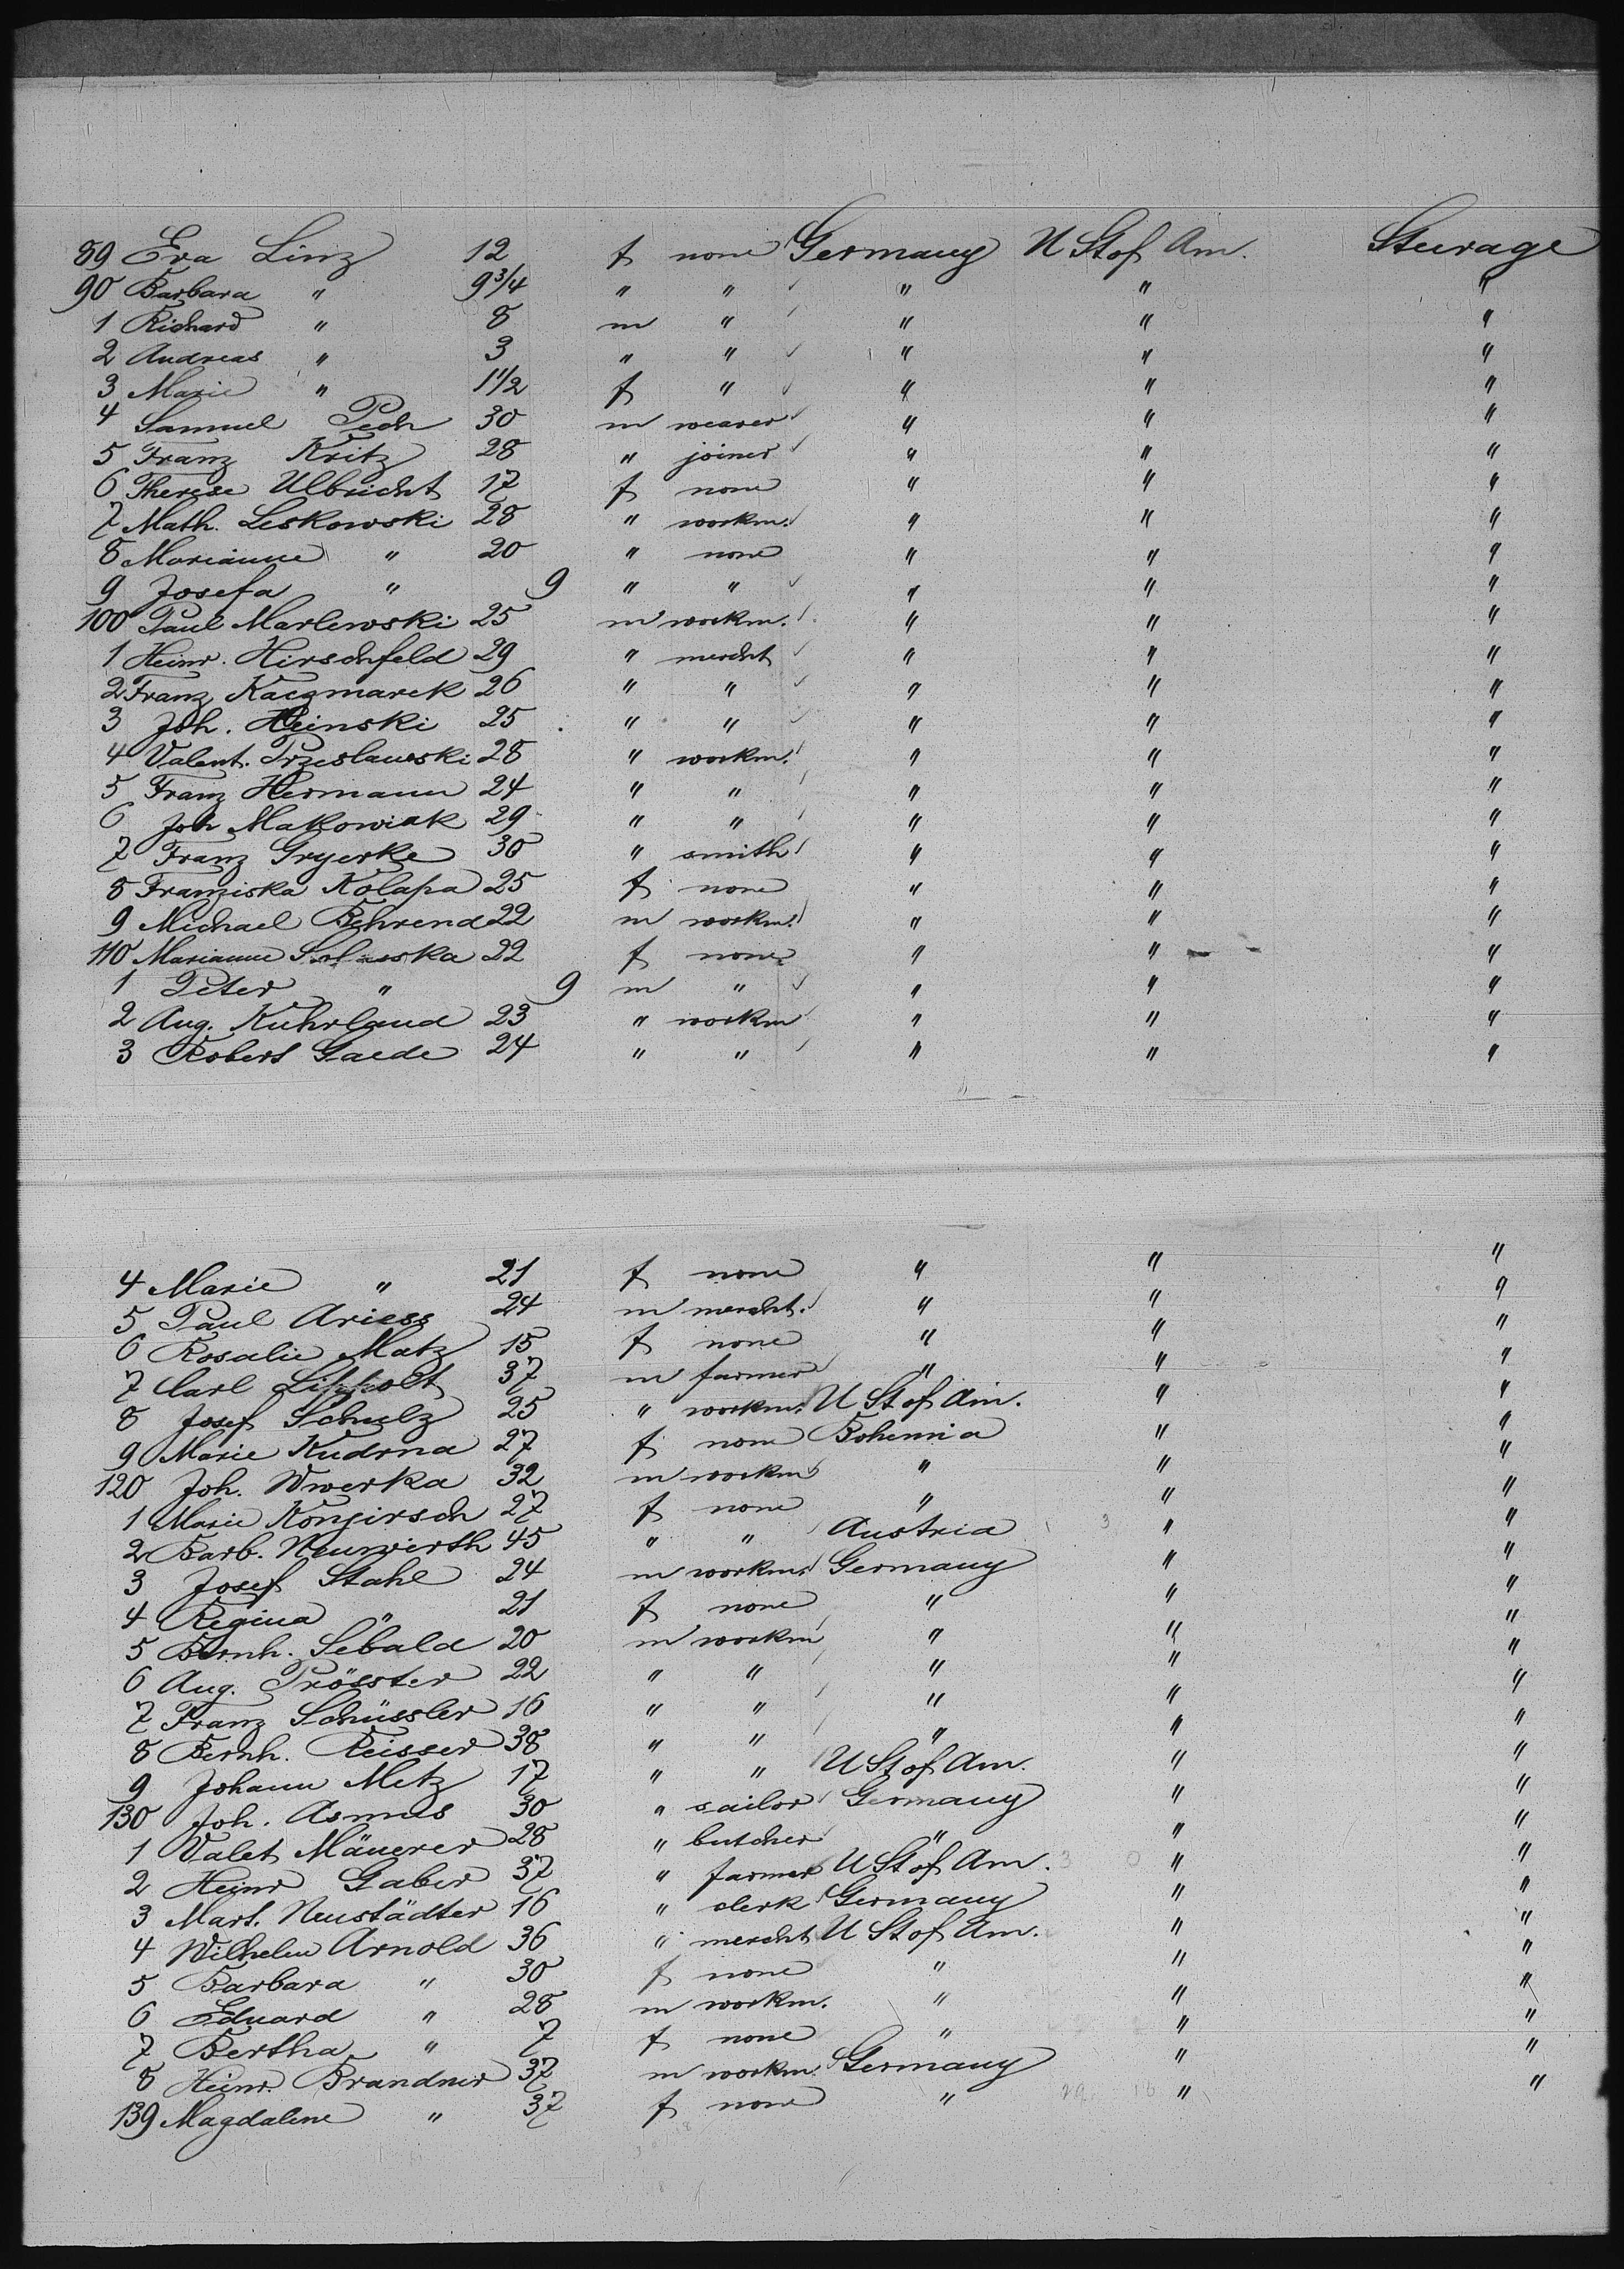 89 Eva Linz 12 f none Germany U St of Am. Steerage
90 Barbara " 9 3/4 " " " " "
1 Richard " 8 m " " " "
2 Andreas " 3 " " " " "
3 Marie " 1 1/2 f " " " "
4 Samuel Pech 30 m weaver " " "
5 Franz Kritz 28 " joiner " " "
6 Therese Ulbricht 17 f none " " "
7 Math. Leskowski 28 " workm. " " "
8 Marianne " 20 " none " " "
9 Josefa " 9 " " " " "
100 Paul Marlewski 25 m workm. " " "
1 Heinr. Hirschfeld 29 " mercht " " "
2 Franz Kaczmarek 26 " " " " "
3 Joh. Heinski 25 " " " " "
4 Valent. Przeslawski 28 " workm. " " "
5 Franz Hermann 24 " " " " "
6 Joh Makowiak 29 " " " " "
7 Franz Gryerke 30 " smith " " "
8 Franziska Kolapa 25 f none " " "
9 Michael Behrend 22 m workm. " " "
110 Marianne 22 f none " " "
1 Peter " 9 m " " " "
2 Aug. Kuhrland 23 " workm " " "
3 Robert Gaede 24 " " " " "
4 Marie " 21 f none " " "
5 Paul Ariess 24 m mercht. " " "
6 Rosalie Matz 15 f none " " "
7 Carl Lippolt 37 m farmer " " "
8 Josef Schulz 25 " workm. U St of Am. " "
9 Marie Kudrna 27 f none Bohemia " "
120 Joh. Wwerka 32 m workm " " "
1 Marie Konzirsch 27 f none " " "
2 Barb. Neuwirth 45 " " Austria " "
3 Josef Stahl 24 m workm. Germany " "
4 Regina " 21 f none " " "
5 Bernh. Sebald 20 m workm " " "
6 Aug. Prösster 22 " " " " "
7 Franz Schüssler 16 " " " " "
8 Bernh. Reisser 38 " " " " "
9 Johann Metz 17 " " U St of Am. " "
130 Joh. Asmus 30 " sailor Germany " "
1 Valet Mäuerer 28 " butcher " " "
2 Heinr Gaber 37 " farmer U St of Am. " "
3 Mart. Neustädter 16 " clerk Germany " "
4 Wilhelm Arnold 36 " mercht U St of Am. " "
5 Barbara " 30 f none " " "
6 Eduard " 28 m workm. " " "
7 Bertha " 7 f none " " "
8 Heinr. Brandner 37 m workm. Germany " "
139 Magdalene " 37 f none " " "